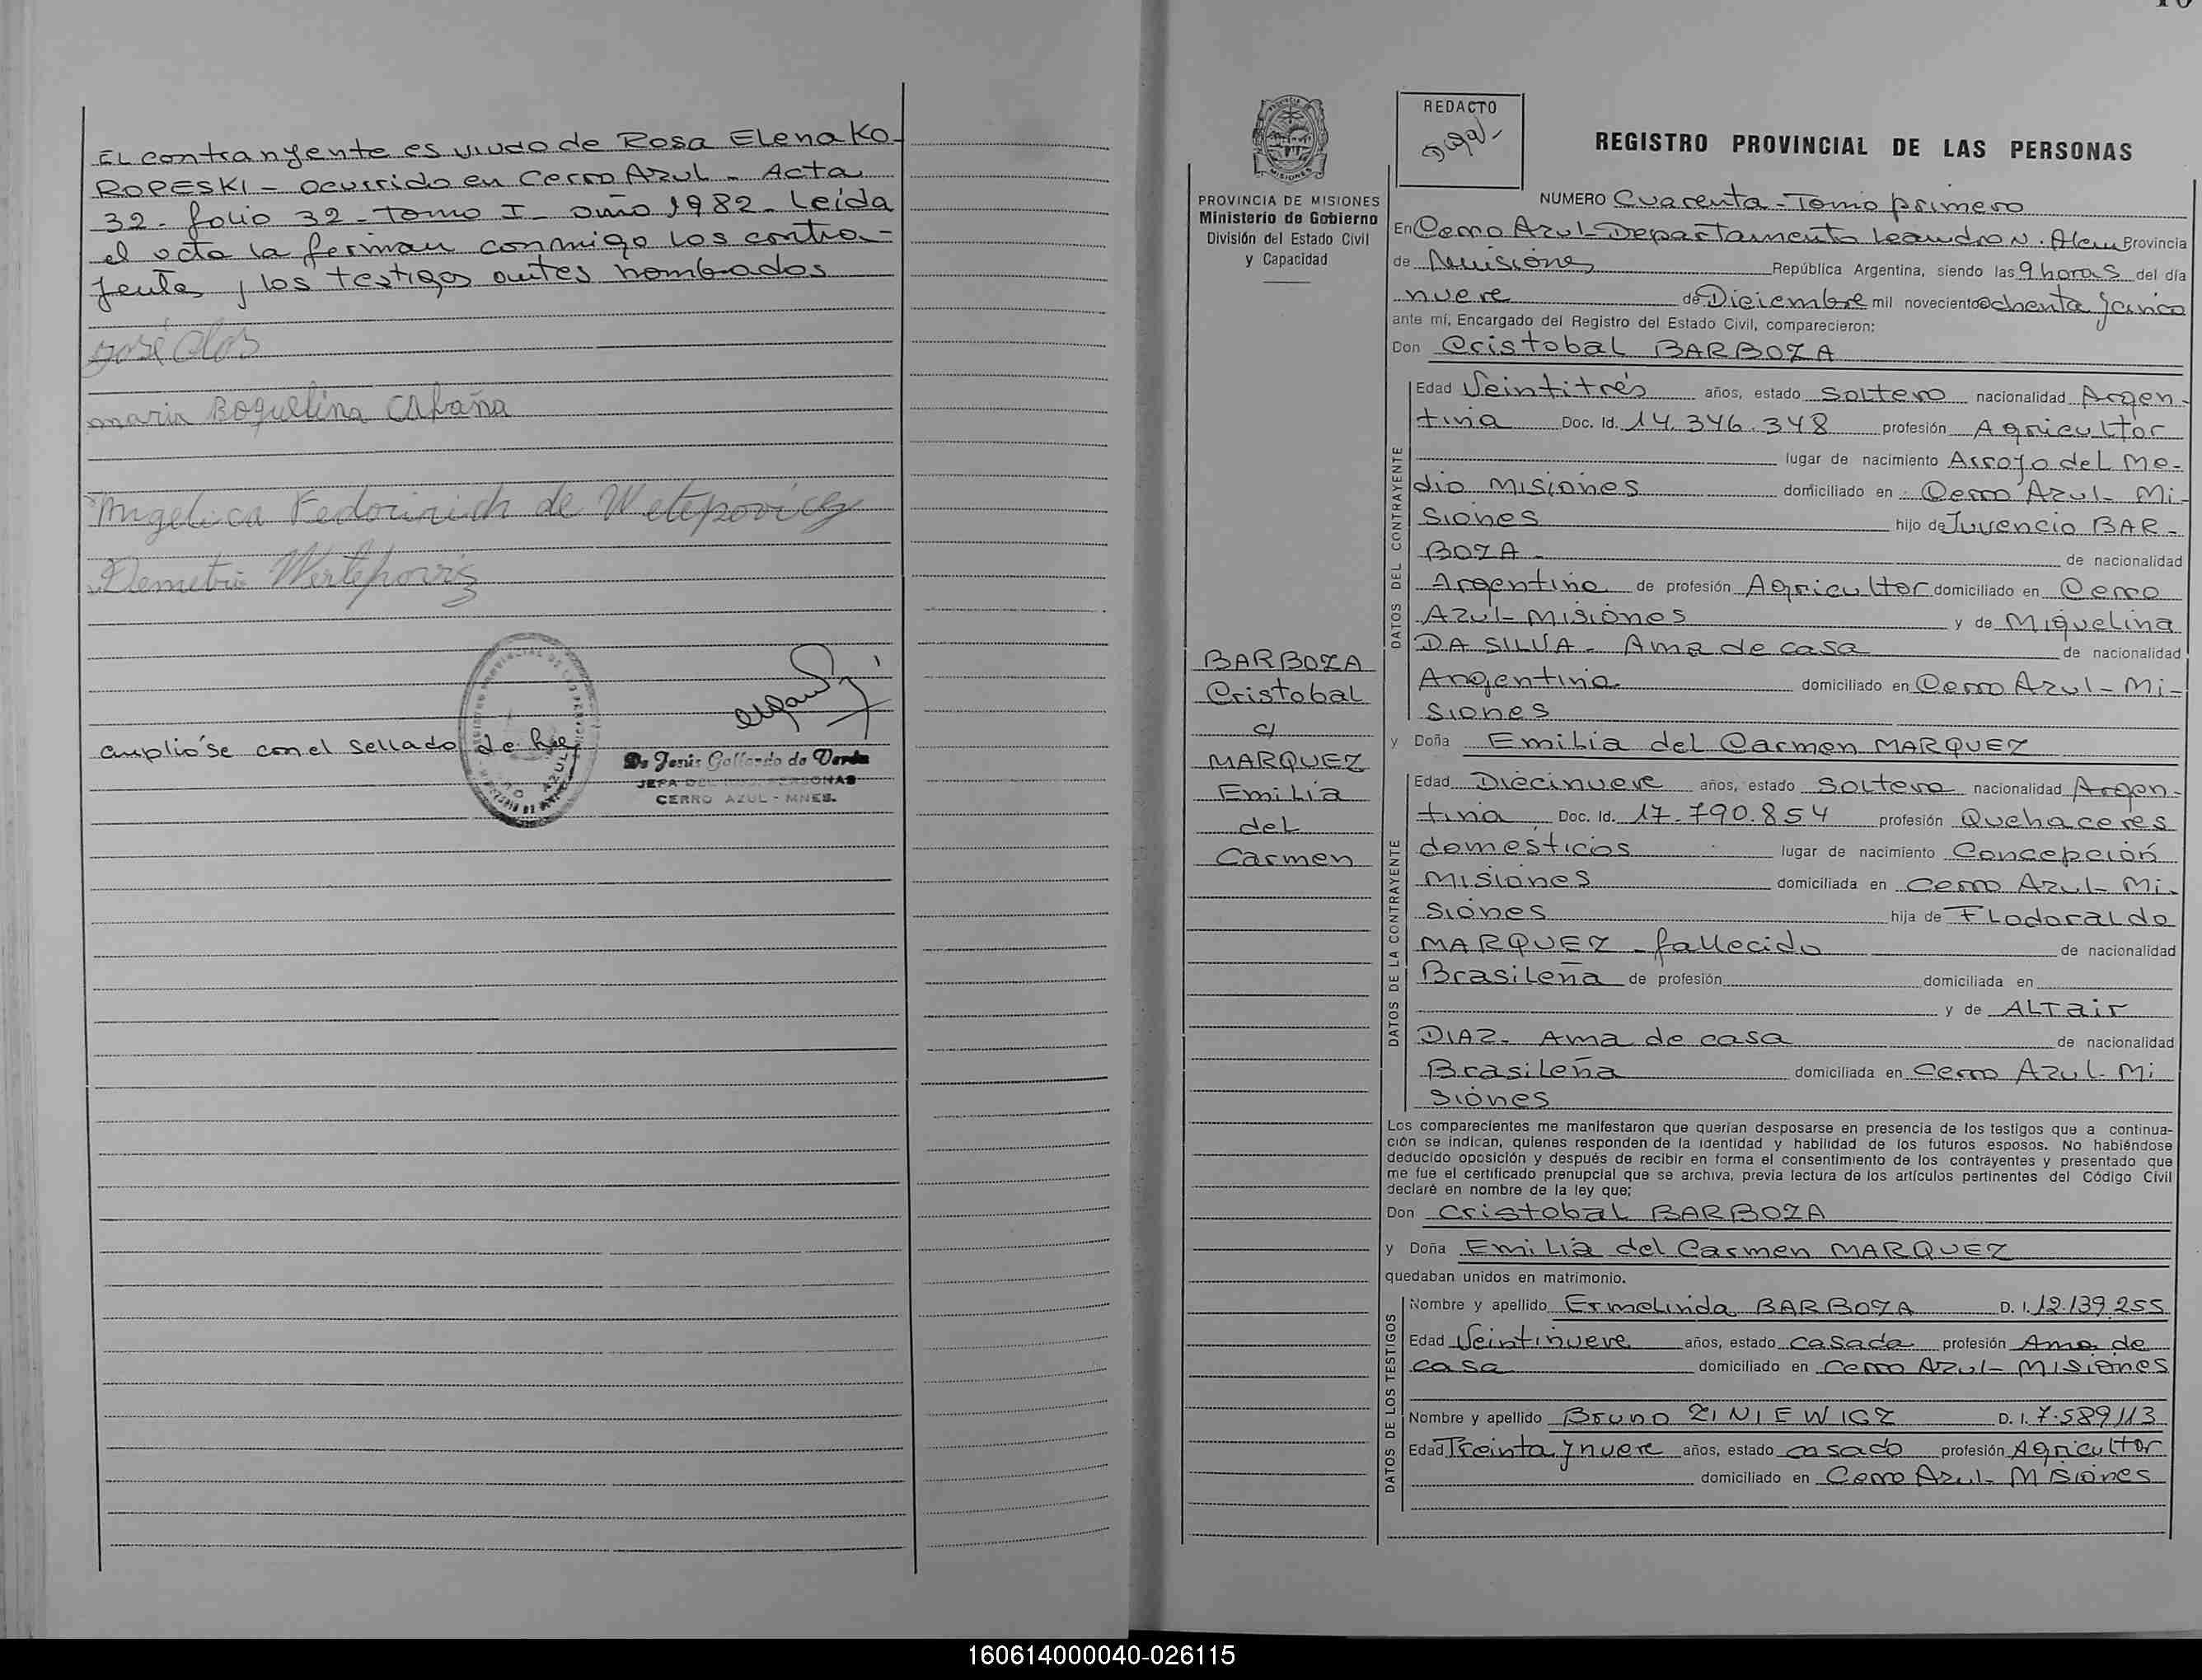 El contrayente es viudo de Rosa Elena KO-
ROPESKI - ocurrido en Cerro Azul - Acta
32 - folio 32 - Tomo I - año 1982 - Leída
el acta la firman conmigo los contra-
yentes y los testigos antes nombrados
José Olos
maria Boquelina Cabaña
Angelica Fedorinich de Wetepovicz
Demetrio Wertepovicz
amplióse con el sellado de ley
De Jenis Gallardo de Verón
JEFA DEL REG. PERSONAS
CERRO AZUL - MNES.
PROVINCIA DE MISIONES
Ministerio de Gobierno
División del Estado Civil
y Capacidad
BARBOZA
Cristobal
c/
MARQUEZ
Emilia
del
Carmen
REDACTO
REGISTRO PROVINCIAL DE LAS PERSONAS
NUMERO Cuarenta - Tomo primero
En Cerro Azul - Departamento Leandro N. Alem Provincia
de Misiones República Argentina, siendo las 9 horas del día
nueve de Diciembre mil novecientos ochenta y cinco
ante mí, Encargado del Registro del Estado Civil, comparecieron:
Don Cristobal BARBOZA
DATOS DEL CONTRAYENTE
Edad Veintitrés años, estado soltero nacionalidad Argen-
tina Doc. Id. 14.346.348 profesión Agricultor
lugar de nacimiento Arroyo del Me-
dio Misiones domiciliado en Cerro Azul - Mi-
siones hijo de Juvencio BAR-
BOZA - de nacionalidad
Argentina de profesión Agricultor domiciliado en Cerro
Azul - Misiones y de Miguelina
DA SILVA - Ama de casa de nacionalidad
Argentina domiciliado en Cerro Azul - Mi-
siones
y Doña Emilia del Carmen MARQUEZ
DATOS DE LA CONTRAYENTE
Edad Diecinueve años, estado Soltera nacionalidad Argen-
tina Doc. Id. 17.790.854 profesión Quehaceres
domésticos lugar de nacimiento Concepción
Misiones domiciliada en Cerro Azul - Mi-
siones hija de Flodoraldo
MARQUEZ - fallecido de nacionalidad
Brasileña de profesión domiciliada en
y de ALTair
DIAZ - Ama de casa de nacionalidad
Brasileña domiciliada en Cerro Azul - Mi
siones
Los comparecientes me manifestaron que querían desposarse en presencia de los testigos que a continua-
ción se indican, quienes responden de la identidad y habilidad de los futuros esposos. No habiéndose
deducido oposición y después de recibir en forma el consentimiento de los contrayentes y presentado que
me fue el certificado prenupcial que se archiva, previa lectura de los artículos pertinentes del Código Civil
declaré en nombre de la ley que;
Don Cristobal BARBOZA
y Doña Emilia del Carmen MARQUEZ
quedaban unidos en matrimonio.
DATOS DE LOS TESTIGOS
Nombre y apellido Ermelinda BARBOZA D. I. 12.139.255
Edad Veintinueve años, estado casada profesión Ama de
casa domiciliado en Cerro Azul - Misiones
Nombre y apellido Bruno ZINIEWICZ D. I. 7.589.113
Edad Treinta y nueve años, estado casado profesión Agricultor
domiciliado en Cerro Azul - Misiones
160614000040-026115